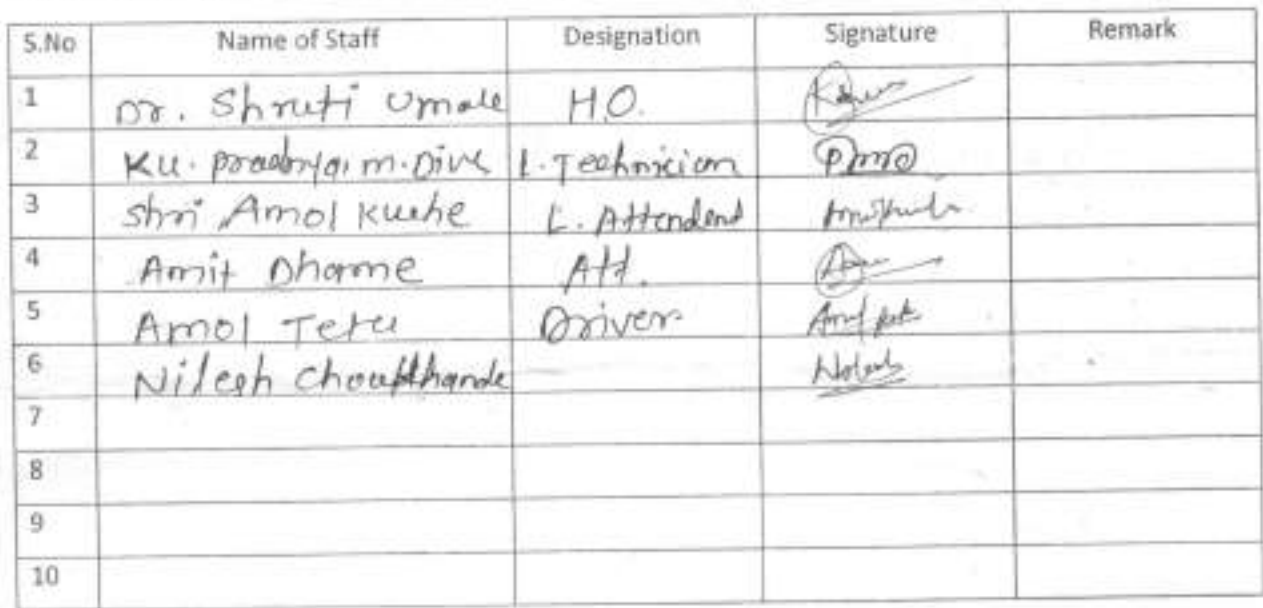 S.No Name of Staff Designation Signature Remark
1 Dr. Shruti Umale H.O.
2 Ku. m. Dive L. Technician
3 Shri Amol Kuche L. Attendend
4 Amit Dhame Att.
5 Amol Tete Driver
6 Nilesh
7
8
9
10